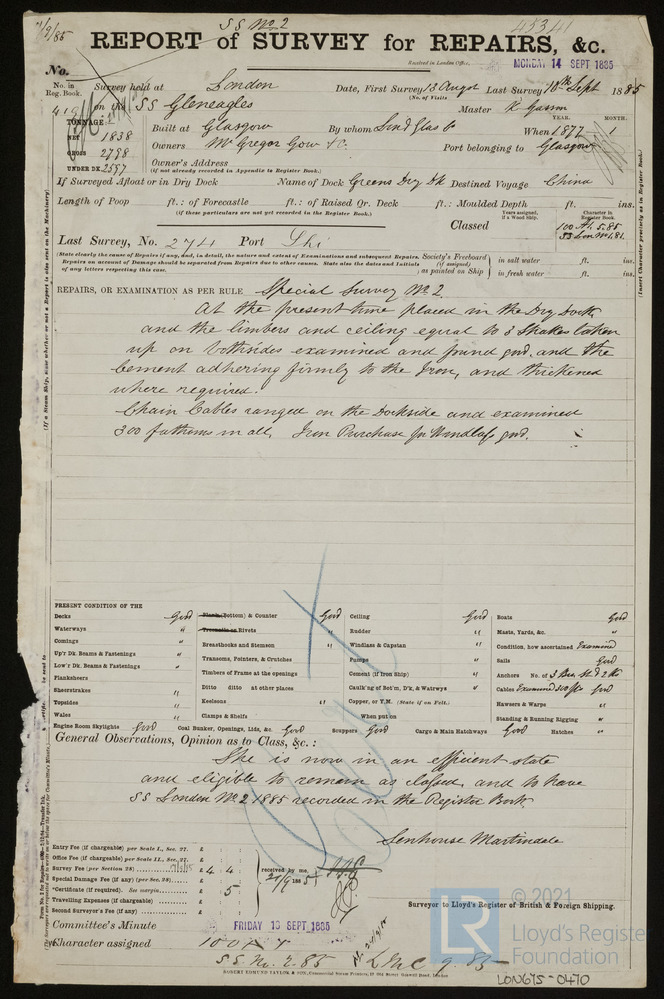 7/9/85
SS No. 2
45341
REPORT of SURVEY for REPAIRS, &c.
Received in London Office, MONDAY 14 SEPT 1885
No.
No. in Reg. Book. Survey held at London Date, First Survey 13 Augst Last Survey 10th Sept 1885
(No. of Visits
419 on the SS Gleneagles Master
TONNAGE YEAR. MONTH.
NET 1838 Built at Glasgow By whom When 1877 1
(If a Wood Ship.
GROSS 2798 Owners McGregor Gow & Co. Port belonging to Glasgow
UNDER DK. 2597 Owner's Address
(If not already recorded in Appendix to Register Book.)
If Surveyed Afloat or in Dry Dock Name of Dock Greens Dry Dk Destined Voyage China
Length of Poop ft.: of Forecastle ft.: of Raised Qr. Deck ft.: Moulded Depth ft. ins.
(if these particulars are not yet recorded in the Register Book.) Years assigned, if a Wood Ship. Character in Register Book.
Classed 100 A1. 5.85
SS Lon No 1.81.
Last Survey, No. 274 Port Shi
Society's Freeboard (if assigned) as painted on Ship in salt water ft. ins.
in fresh water ft. ins.
(State clearly the cause of Repairs if any, and, in detail, the nature and extent of Examinations and subsequent Repairs.
Repairs on account of Damage should be separated from Repairs due to other causes. State also the dates and Initials
of any letters respecting this case.
REPAIRS, OR EXAMINATION AS PER RULE Special Survey No. 2
At the present time placed in the Dry Dock
and the limbers and ceiling equal to 3 strakes taken
up on both sides examined and found good, and the
Cement adhering firmly to the Iron, and thickened
where required.
Chain Cables ranged on the dockside and examined
300 fathoms in all. Iron Purchase for Windlass good.
PRESENT CONDITION OF THE
Decks Good Plank (Bottom) & Counter Good Ceiling Good Boats Good
Waterways " Treenails or Rivets " Rudder " Masts, Yards, &c. "
Comings " Breasthooks and Stemson Windlass & Capstan " Condition, how ascertained Examined
Up'r Dk. Beams & Fastenings " Transoms, Pointers, & Crutches Pumps " Sails Good
Low'r Dk. Beams & Fastenings " Timbers of Frame at the openings Cement (if Iron Ship) " Anchors No. of
Planksheers Ditto ditto at other places Caulk'ng of Bot'm, D'k, & Waterways " Cables Examined 300 fms Good
Sheerstrakes " Keelsons " Copper, or Y.M. (State if on Felt.) Hawsers & Warps "
Topsides " Clamps & Shelfs When put on Standing & Running Rigging "
Wales "
Engine Room Skylights Good Coal Bunker, Openings, Lids, &c. Good Scuppers Good Cargo & Main Hatchways Good Hatches "
General Observations, Opinion as to Class, &c.:
She is now in an efficient state
and eligible to remain as classed, and to have
SS London No. 2 1885 recorded in the Register Book.
Senhouse Martindale
Entry Fee (if chargeable) per Scale I., Sec. 27. £
Office Fee (if chargeable) per Scale II., Sec. 27. £
Survey Fee (per Section 28) £ 4 4 received by me,
Special Damage Fee (if any) (per Sec. 28) £ 21/9 1885
*Certificate (if required). See margin 5
Travelling Expenses (if chargeable) £
Second Surveyor's Fee (if any) £
Surveyor to Lloyd's Register of British & Foreign Shipping.
Committee's Minute FRIDAY 18 SEPT 1885
Character assigned 100 A 1
S.S. No. 2. 85 LMC 9.85
ROBERT EDMUND TAYLOR & SON, Commercial Steam Printers, 19 Old Street, Goswell Road, London
(If a Steam Ship, state whether or not a Report is also sent on the Machinery)
(Insert Character precisely as in Register Book.)
© 2021
LR
Lloyd's Register
Foundation
LON675-0470